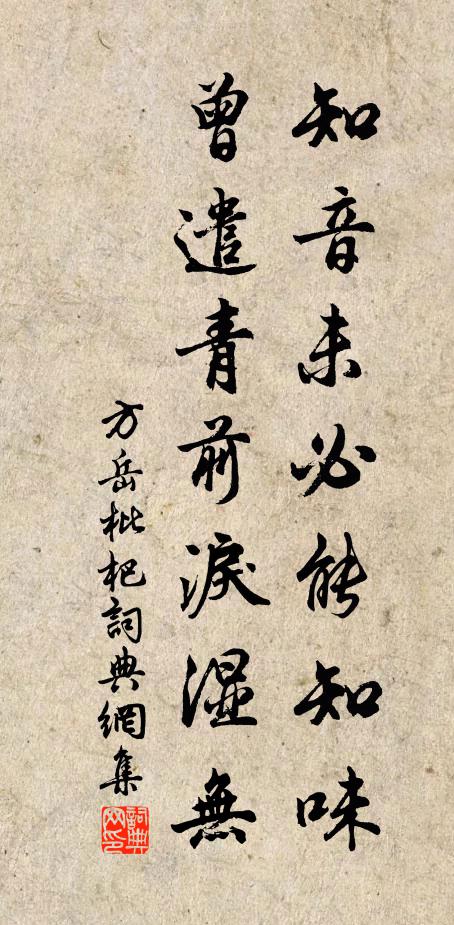 知音未必能知味
曾遣青前淚濕無
方岳枇杷詞典網集
詞典网印